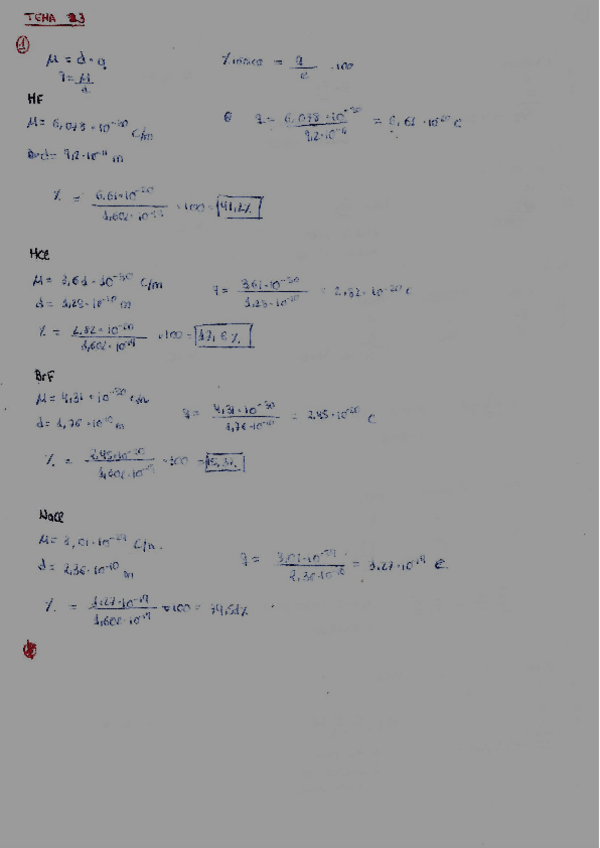 TEMA 23
1
μ = d · q
q = μ/d
% iónico = q/e · 100
HF
μ = 6,078 · 10⁻³⁰ C/m
d = 9,2 · 10⁻¹¹ m
q = = 6,61 · 10⁻²⁰ C
% = 6,61·10⁻²⁰ / · 100 = 41,2%
HCl
μ = 3,61 · 10⁻³⁰ C/m
q = 3,61 · 10⁻³⁰ / 1,28 · 10⁻¹⁰ = 2,82 · 10⁻²⁰ C
d = 1,28 · 10⁻¹⁰ m
% = 2,82 · 10⁻²⁰ / 1,602 · 10⁻¹⁹ · 100 = 17,6%
BrF
μ = 4,31 · 10⁻³⁰ C/m
d = 1,76 · 10⁻¹⁰ m
q = 4,31 · 10⁻³⁰ / 1,76 · 10⁻¹⁰ = 2,45 · 10⁻²⁰ C
% = 2,45 · 10⁻²⁰ / 1,602 · 10⁻¹⁹ · 100 = 15,3%
NaCl
μ = 3,01 · 10⁻²⁹ C/m
d = 2,36 · 10⁻¹⁰ m
q = 3,01 · 10⁻²⁹ / 2,36 · 10⁻¹⁰ = 1,27 · 10⁻¹⁹ C
% = 1,27 · 10⁻¹⁹ / 1,602 · 10⁻¹⁹ · 100 =